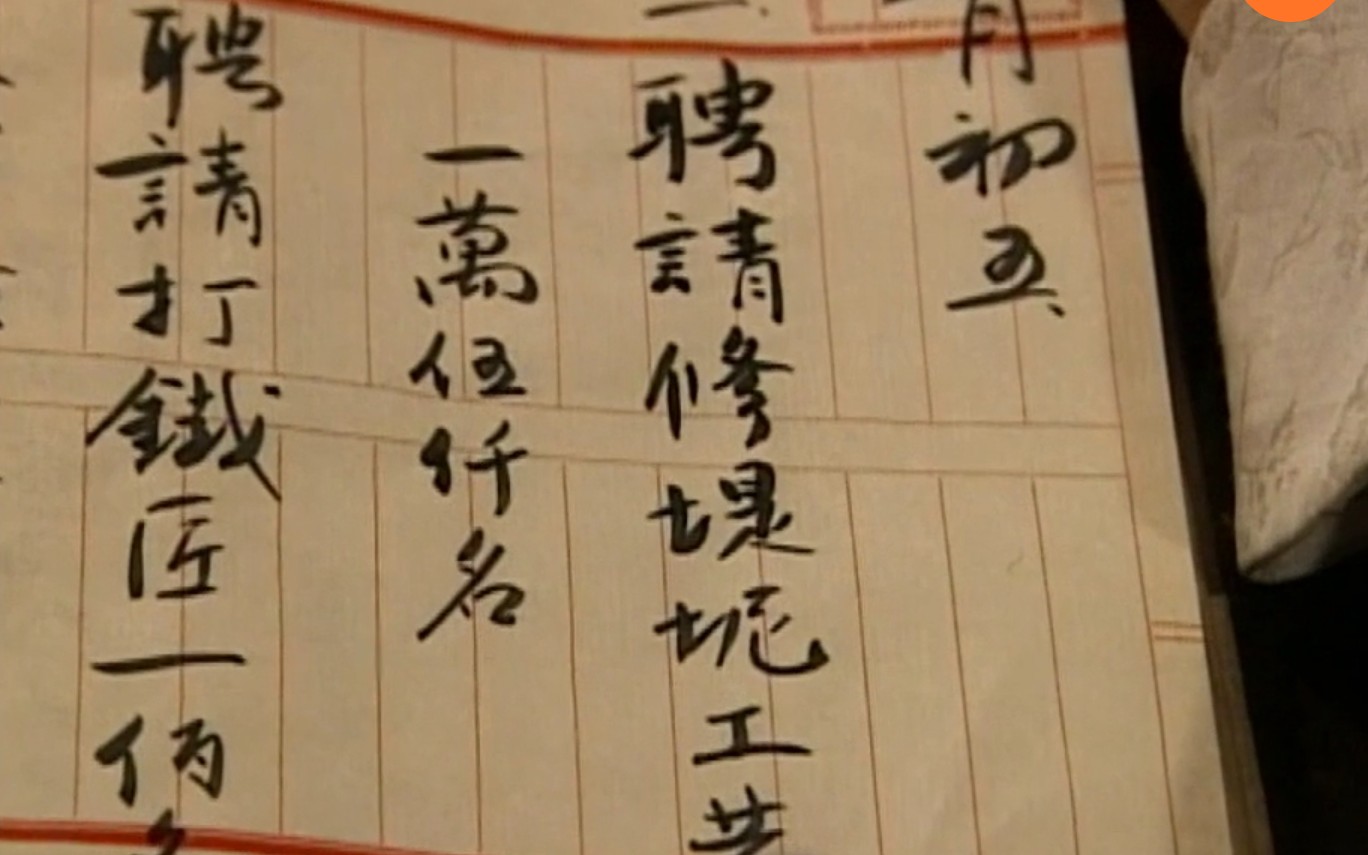 月初五
聘請修堤坭工共
一萬伍仟名
聘請打鐵匠一佰名